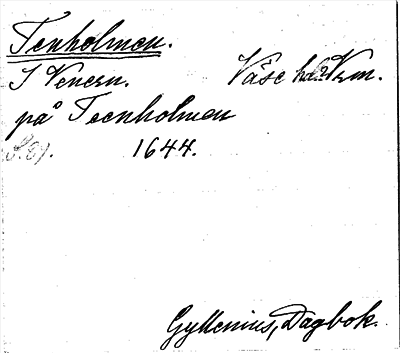 Tenholmen.
I Venern. Väse hd. Vrm.
på Teenholmen
S. 87. 1644.
Gyllenius, Dagbok.